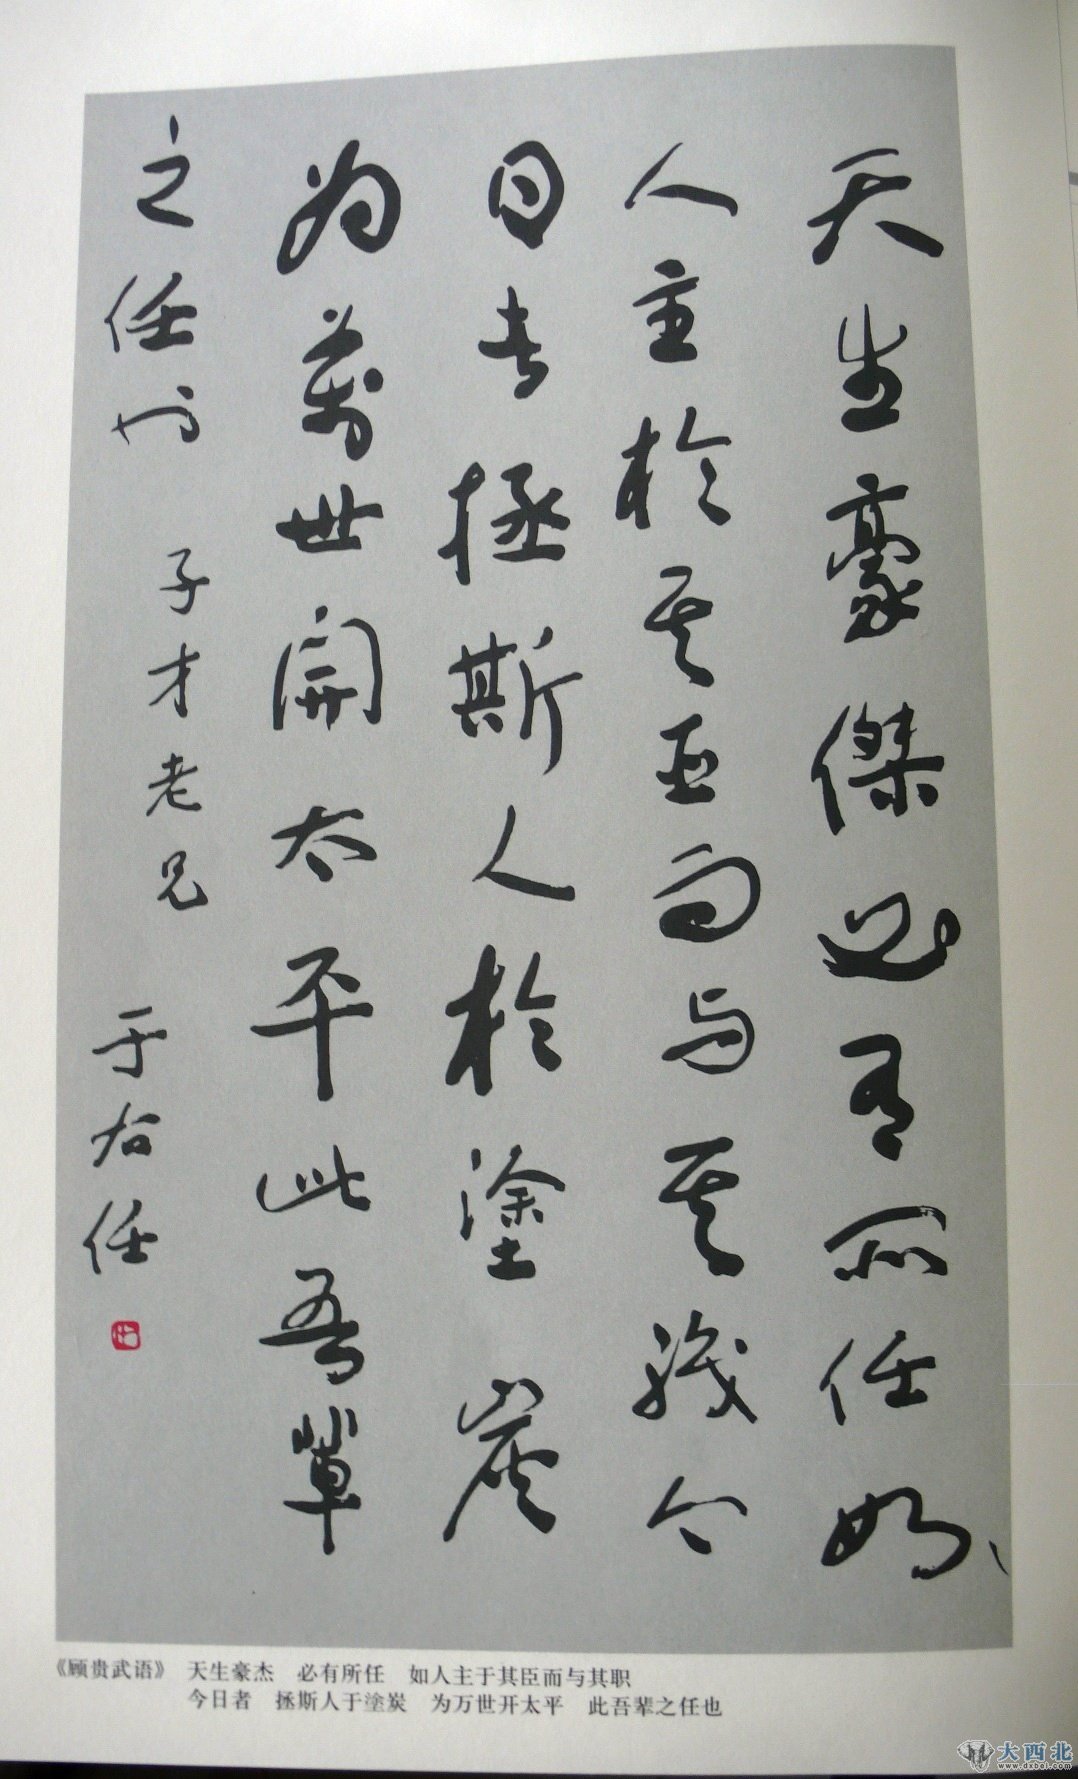 天生豪傑必有所任如
人主於其臣而与其職今
日者拯斯人於塗炭
为萬世開太平此吾輩
之任也
子才老兄
于右任
《顾贵武语》 天生豪杰 必有所任 如人主于其臣而与其职
今日者 拯斯人于塗炭 为万世开太平 此吾辈之任也
大西北
www.dxbei.com